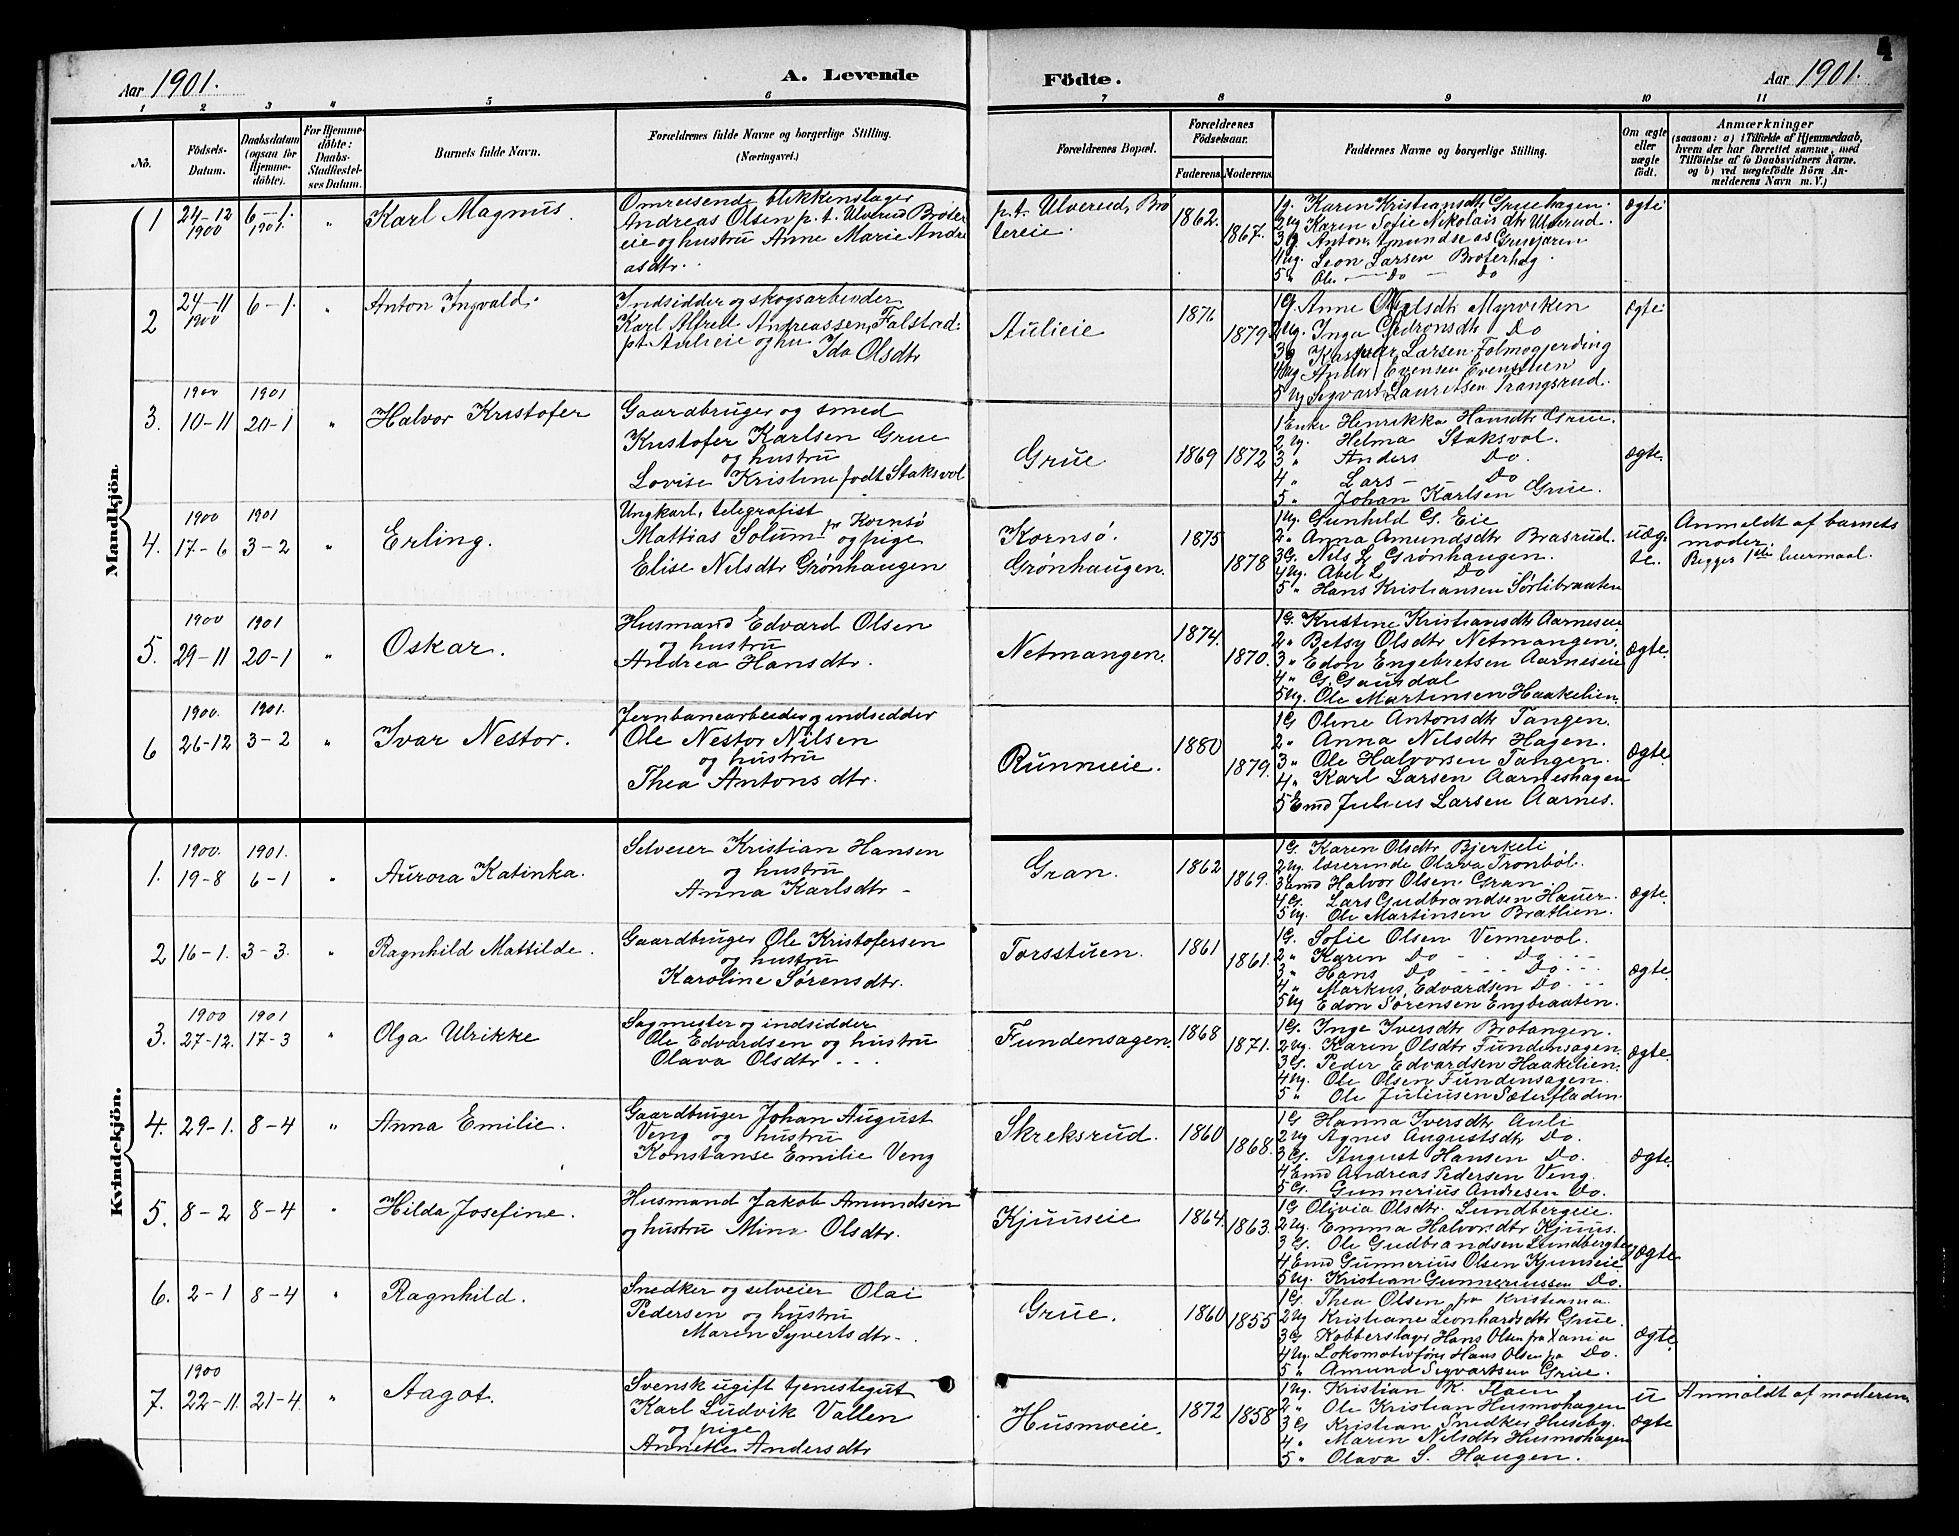 4
Aar 1901.
A. Levende
Födte.
Aar 1901.
1 2 3 4 5 6 7 8 9 10 11
No.
Födsels-Datum.
Daabsdatum (ogsaa for Hjemmedöbte).
For Hjemmedöbte: Daabs-Stadfæstelses Datum.
Barnets fulde Navn.
Forældrenes fulde Navne og borgerlige Stilling.
(Næringsvei.)
Forældrenes Bopæl.
Forældrenes Födselsaar.
Faderens. Moderens.
Faddernes Navne og borgerlige Stilling.
Om ægte eller uægte födt.
Anmærkninger
(saasom: a) i Tilfælde af Hjemmedaab, hvem der har forrettet samme, med Tilföielse af to Daabsvidners Navne. og b) ved uægtefödte Börn Anmelderens Navn m. V.)
Mandkjön
1
24-12 1900
6-1. 1901.
"
Karl Magnus.
Omreisende blikkenslager
Andreas Olsen p.t. Ulverud Bröter
eie og hustru Anne Marie Andre
asdtr.
p.t. Ulverud, Brö
tereie.
1862.
1867.
1g. Karen Kristiansdtr Gruehagen.
2ug Karen Sofie Nikolaisdtr Ulverud.
3g Anton Amundse
4ug. Leon Larsen Bröterhag.
5 " Ole - Do - Do
ægte
2
24-11 1900
6-1.
"
Anton Ingvald.
Indsidder og skogsarbeider
Karl Alfred Andreassen, Falstad.
pt Aulieie og hu Ida Olsdtr
Aulieie
1876
1879
1G Anne Olsdtr Myrviken
2Ug. Inga Do
3g Kaspar Larsen Folmogjerding
4Ug Andor Evensen Evenstuen
5 Ug Sigvart Lauritsen Trangsrud.
ægte
3.
1900
10-11
1901
20-1
"
Halvor Kristofer
Gaardbruger og smed
Kristofer Karlsen Grue
og hustru
Lovise Kristine født Staksvol
Grue
1869
1872
1 Enke Henrikka Hansdtr Grue.
2 Ug. Helma Staksvol.
3 " Anders Do.
4 " Lars - Do
5 " Johan Karlsen Grue.
ægte.
4.
1900
17-6
1901
3-2
"
Erling.
Ungkarl, telegrafist
Mattias Solum fr Kornsø
og pige
Elise Nilsdtr Grønhaugen
Kornsø.
Grønhaugen.
1875
1878
1Ug. Gunhild G. Eie
2 " Anna Amundsdtr Brasrud.
3G. Nils L Grønhaugen.
4Ug. Abel L Do
5 " Hans Kristiansen Sørlibraaten
uæg-
te.
Anmeldt af barnets
moder.
Begges 1ste leiermaal.
5.
1900
29-11
1901
20-1
"
Oskar.
Husmand Edvard Olsen
og hustru
Andrea Hansdtr.
Netmangen.
1874.
1870.
1G. Kristine Kristiansdtr Aarneseie
2 " Betsy Olsdtr Netmangen.
3 " Edon Engebretsen Aarneseie
4 " G. Gausdal
5Ug. Ole Martinsen Haakelien.
ægte.
6
1900.
26-12
1901.
3-2
"
Ivar Nestor.
Jernbanearbeider og indsidder
Ole Nestor Nilsen
og hustru
Thea Antonsdtr.
Runneie.
1880
1879.
1G Oline Antonsdtr Tangen.
2 " Anna Nilsdtr Hagen.
3 " Ole Halvorsen Tangen.
4 " Karl Larsen Aarneshagen
5 Emd Julius Larsen Aarnes.
ægte.
Kvindekjön.
1.
1900.
19-8
1901.
6-1
"
Aurora Katinka.
Selveier Kristian Hansen
og hustru
Anna Karlsdtr -
Gran.
1862
1869.
1G. Karen Olsdtr Bjerkeli
2Ug. lærerinde Olava Tronbøl.
3Emd Halvor Olsen Gran
4G. Lars Gudbrandsen Hauer.
5Ug. Ole Martinsen Bratlien.
ægte.
2
16-1.
3-3.
"
Ragnhild Mattilde.
Gaardbruger Ole Kristofersen
og hustru
Karoline Sørensdtr.
Torsstuen.
1861
1861.
1G. Sofie Olsen Vennevol.
2 " Karen Do - . Do . . -
3 " Hans Do - - - Do. - -
4 " Markus Edvardsen Do. - -
5Ug Edon Sørensen Engbraaten.
ægte.
3.
1900
27-12.
1901
17-3
"
Olga Ulrikke
Sagmester og indsidder
Ole Edvardsen og hustru
Olava Olsdtr - - -
Fundensagen.
1868
1871.
1G. Inge Iversdtr Brotangen.
2Ug. Karen Olsdtr Fundensagen.
3G. Peder Edvardsen Haakelien.
4Ug. Ole Olsen Fundensagen.
5 " Ole Juliusen Sæterfladen.
ægte.
4.
29-1.
8-4
"
Anna Emilie.
Gaardbruger Johan August
Veng og hustru
Konstanse Emilie Veng
Skreksrud.
1860
1868.
1G Hanna Iversdtr Auli
2Ug Agnes Augustsdtr Do.
3G. August Hansen Do.
4Emd Andreas Pedersen Veng.
5G. Gunnerius Andresen Do.
ægte.
5.
8-2
8-4
"
Hilda Josefine.
Husmand Jakob Amundsen
og hustru Mina Olsdtr.
Kjuuseie
1864.
1863.
1G Olivia Olsdtr. Lundbergeie.
2Ug. Emma Halvorsdtr Kjuus.
3G. Ole Gudbrandsen Lundbergeie
4Emd Gunnerius Olsen Kjuuseie
5Ug. Kristian Gunneriussen Do.
ægte.
6.
2-1
8-4
"
Ragnhild.
Snedker og selveier Olai
Pedersen og hustru
Maren Syvertsdtr-.
Grue.
1860
1855
1G. Thea Olsen fra Kristiania.
2Ug Kristiane Leonhardsdtr Grue.
3G Kobberslager Hans Olsen fra Xania
4Ug. Lokomotivfører Hans Olsen fra Do.
5 " Amund Sigvartsen Grue.
ægte.
7.
1900
22-11.
21-4.
"
Aagot.
Svensk ugift tjenestegut
Karl Ludvik Vallen
og pige
Annette Andersdtr
Husmoeie.
1872
1858
1Ug. Kristian K. Flaen
2 " Ole Kristian Husmohagen
3G Kristian Snedker Huseby.
4 " Maren Nilsdtr Husmohagen
5 " Olava S. Haugen.
u
ægte
Anmeldt af moderen